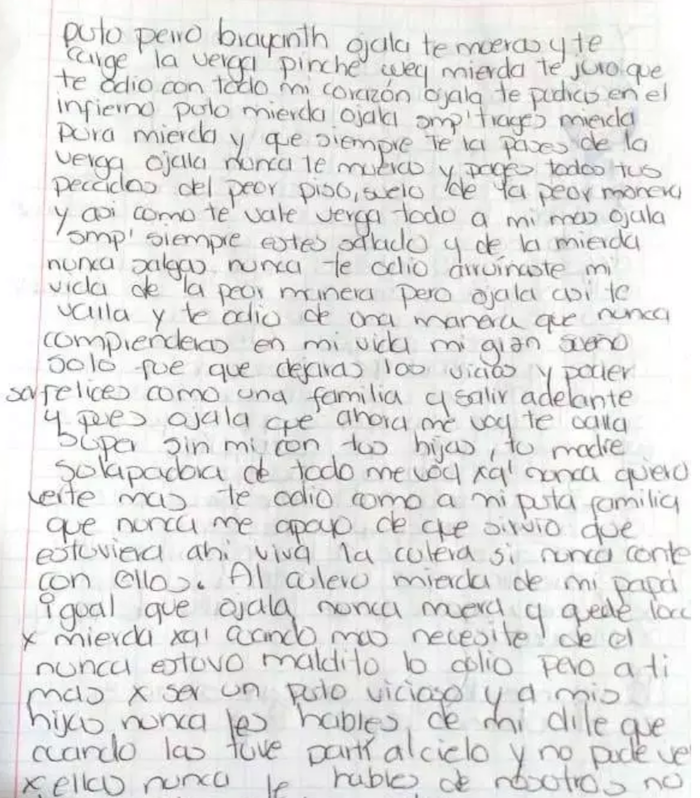 puto perro brayanth ojala te mueras y te
carge la verga pinche wey mierda te juro que
te odio con todo mi corazón ojala te pudras en el
infierno puto mierda ojala smp' trages mierda
pura mierda y que siempre te la pases de la
verga ojala nunca te mueras y pages todos tus
peccidos del peor piso, suelo de la peor manera
y asi como te vale verga todo a mi mas ojala
smp' siempre estes salado y de la mierda
nunca salgas nunca te odio arruinaste mi
vida de la peor manera pero ojala asi te
vailla y te odio de una manera que nunca
comprenderas en mi vida mi gran sueño
solo fue que dejaras los vicios y poder
ser felices como una familia y salir adelante
y pues ojala que ahora me voy te valla
super sin mi con tus hijas, tu madre
solapadora de todo me voy xq' nunca quiero
verte mas te odio como a mi puta familia
que nunca me apoyo de que sirvio que
estuviera ahi viva la culera si nunca conte
con ellos. Al culero mierda de mi papá
igual que ojala nunca muera y quede loco
x mierda xq' cuando mas necesite de el
nunca estuvo maldito lo odio pero a ti
mas x ser un puto vicioso y a mis
hijas nunca les hables de mi dile que
cuando las tuve partí al cielo y no pude ver
x ellas nunca le hables de nosotros no